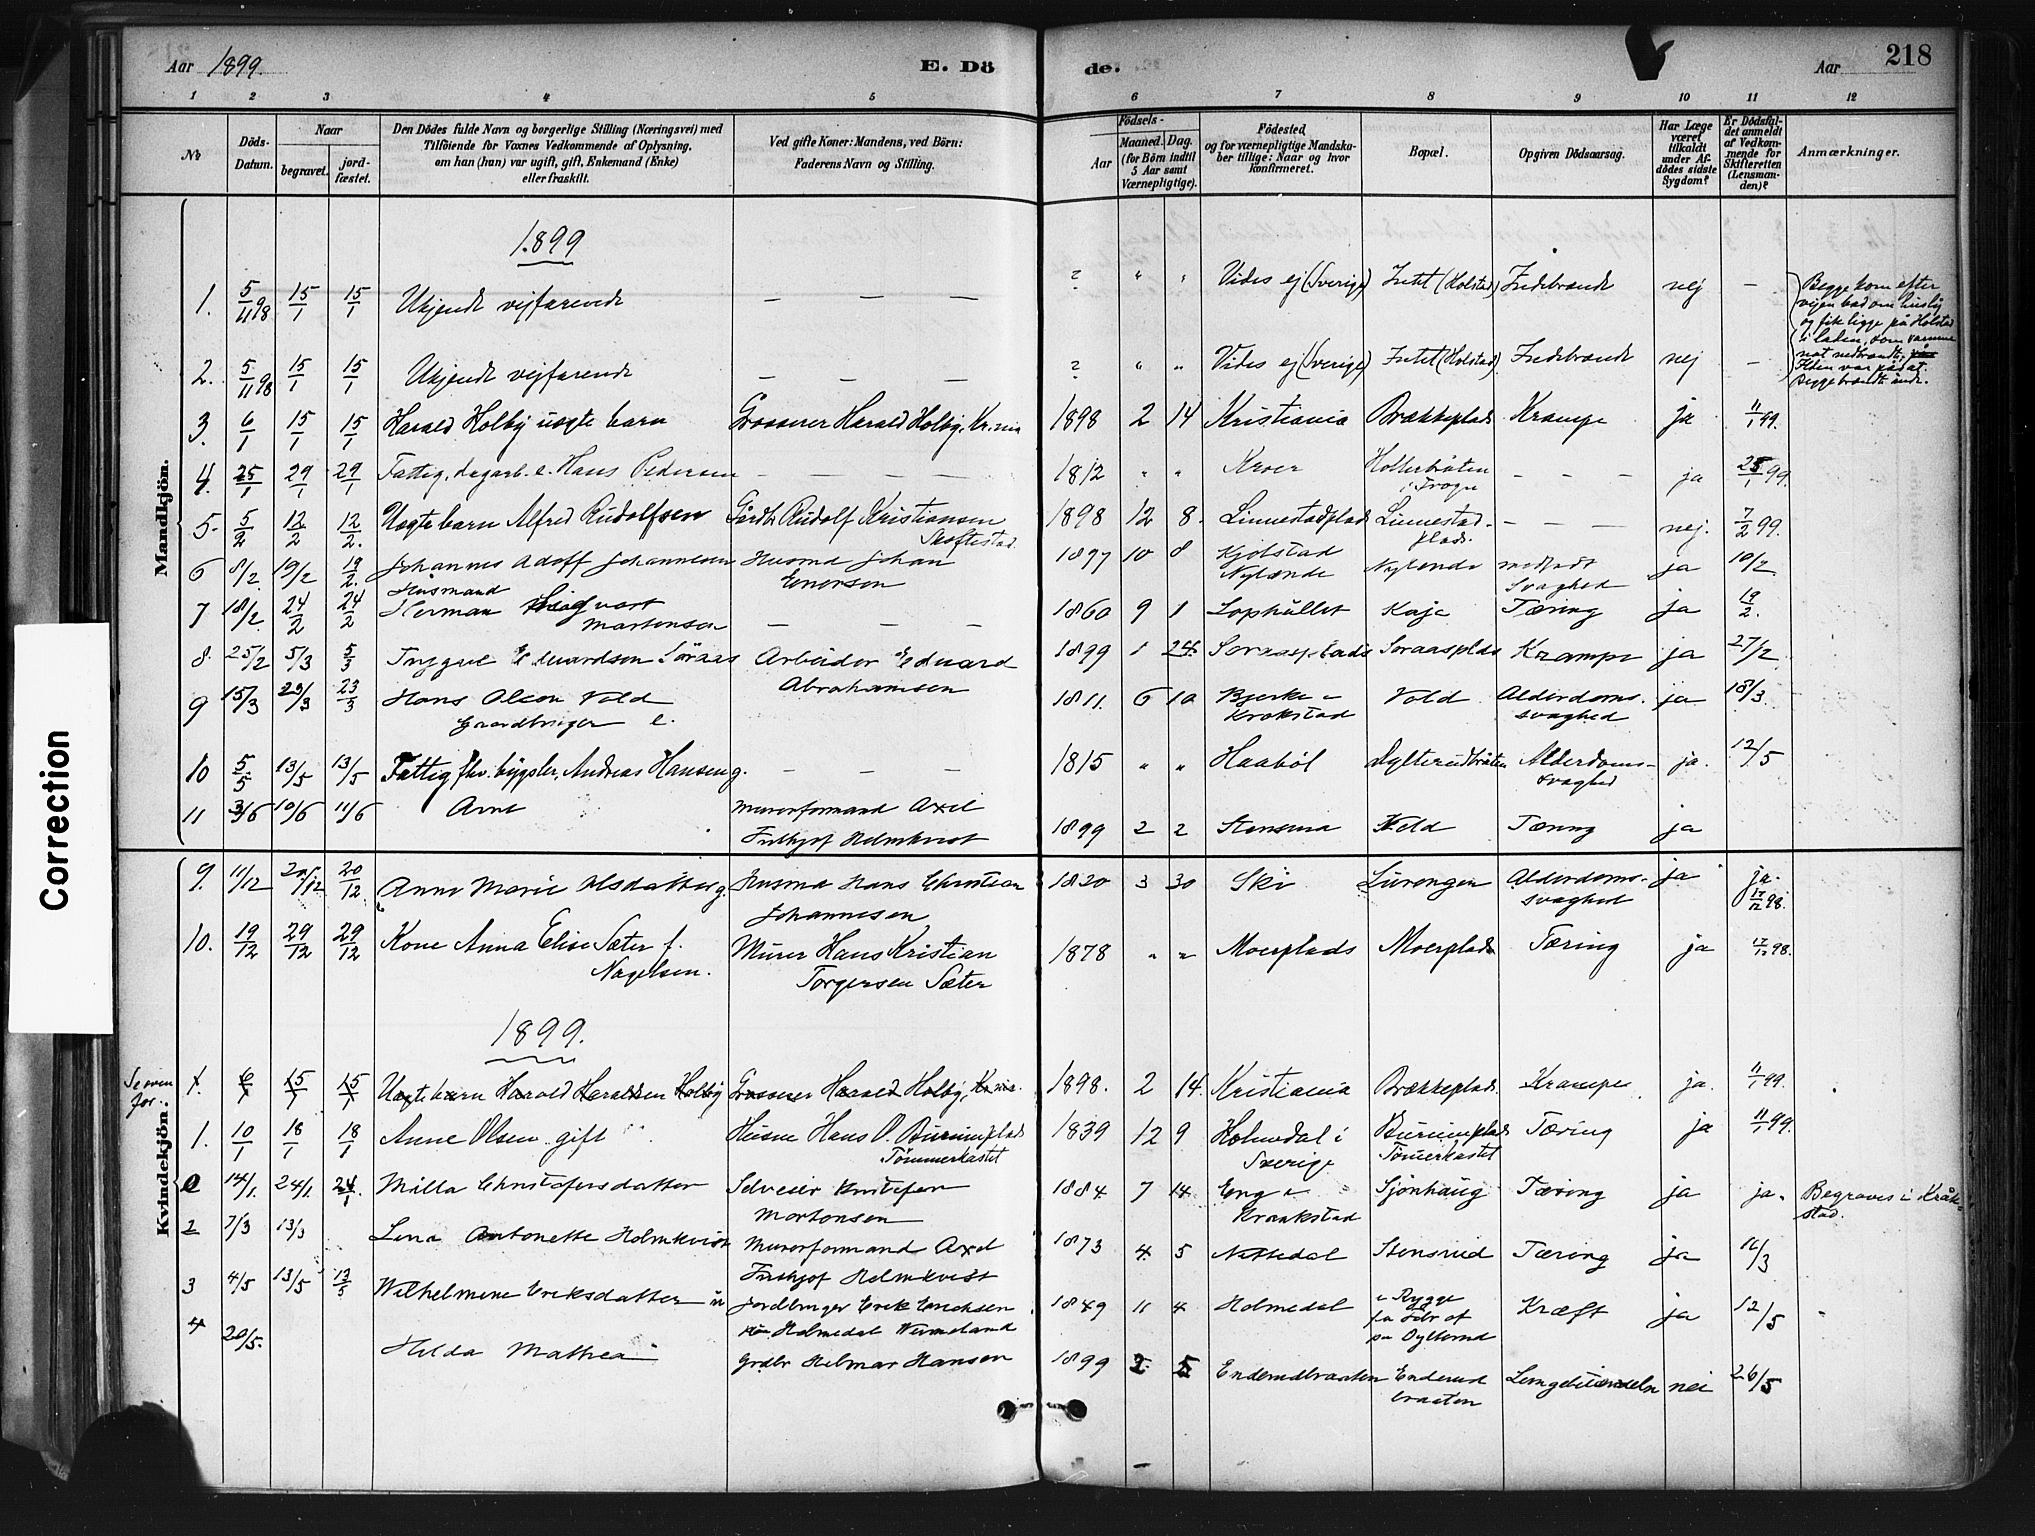 Aar 1899. E. Döde. Aar 218
1 2 3 4 5 6 7 8 9 10 11 12
No
Döds-Datum.
Naar
begravet.
jord-fæstet.
Den Dödes fulde Navn og borgerlige Stilling (Næringsvei) med
Tilföiende for Voxnes Vedkommende af Oplysning,
om han (hun) var ugift, gift, Enkemand (Enke)
eller fraskilt.
Ved gifte Koner: Mandens, ved Börn:
Faderens Navn og Stilling.
Födsels-
Aar
Maaned. Dag.
(for Börn indtil
5 Aar samt
Værnepligtige).
Födested
og for værnepligtige Mandska-
ber tillige: Naar og hvor
konfirmeret.
Bopæl.
Opgiven Dödsaarsag.
Har Læge
været
tilkaldt
under Af-
dödes sidste
Sygdom?
Er Dödsfal-
det anmeldt
af Vedkom-
mende for
Skifteretten
(Lensman-
den)?
Anmærkninger.
Mandkjön.
1899
1. 5/11 98 15/1 15/1 Ukjendt vejfarende — — — ? " " Vides ej (Sverige) Intet (Holstad) Indebrændt nej —
Begge kom efter
vejen bad om husly
og fik ligge på Holstad
i laden, som samme
nat nedbrændte,
Ilden var påsat
Begge brændte inde.
2. 5/11 98 15/1 15/1 Ukjendt vejfarende — — — ? " " Vides ej (Sverige) Intet (Holstad) Indebrændt nej —
3. 6/1 15/1 15/1 Harald Holby uægte barn Grosserer Harald Holby, Kr.nia 1898 2 14 Kristiania Brækkeplads Krampe ja 11/1 99.
4. 25/1 29/1 29/1 Fattig, dagarb. e. Hans Pedersen — — — 1812 " " Kroer Hollerbråten
i Frogn — — — ja 25/1 99.
5. 5/2 12/2 12/2. Uægte barn Alfred Rudolfsen Gårdbr. Rudolf Kristiansen
Skoftestad. 1898 12 8. Linnestadplads Linnestad-
plads. — — — nej. 7/2 99.
6 8/2. 19/2 19/2. Johannes Adolf Johannesen Husmd Johan
Enersen 1897 10 8 Kjolstad
Nylænde Nylende medfødt
Svaghed ja 10/2.
7 18/2. 24/2 24/2 Husmand
Herman Sigvart
Martensen — — — 1860 9 1 Lophullet Kaja Tæring ja 19/2.
8. 25/2 5/3 5/3 Trygve Edvardsen Söraas Arbeider Edvard
Abrahamsen 1899 1 24. Soraasplads Soraasplds Krampe ja 27/2
9 15/3 23/3 23/3 Hans Olsen Vold
Gaardbruger e. 1811. 6 10 Bjerke i
Krokstad Vold Alderdoms-
svaghed ja 18/3.
10 5/5 13/5 13/5 Fattig fhv. bygsler, Andreas Hansen g. — — — 1815 " " Haaböl Dylterudbråten Alderdoms-
svaghed ja. 12/5
11 3/6 10/6 11/6 Arne Murerformand Axel
Frithjof Holmkvist 1899 2 2 Stensrud Tæring ja
Kvindekjön.
9. 11/12 20/12 20/12. Anne Marie Olsdatter g. Husmd Hans Christian
Johannesen 1820 3 30 Ski Lurengen Alderdoms-
svaghed ja ja.
17/12 98.
10. 19/12 29/12 29/12 Kone Anna Elise Sæter f.
Nagelsen. Murer Hans Kristian
Torgersen Sæter 1878 " " Moerplads Moerplads Tæring ja 98.
1899.
Se oven
for.
1. 6/1 15/1 15/1 Uægte barn Harald Haraldsen Holby Grosserer Harald Holby, Kr.nia. 1898. 2 14. Kristiania Brækkeplads. Krampe. ja. 11/1 99.
1. 10/1 18/1 18/1 Anne Olsen gift Husm Hans O. Burumplads
Tömmerkastet 1839 12 9 Holmdal i
Sverige Burumplads
Tömerkastet Tæring ja 11/1 99.
14/1. 24/1. 24/1. Milla Christofersdatter Selveier Kristofer
Mortensen 1884 7 14 Eng i
Kraakstad Sjönhaug Tæring ja ja. Begraves i Kråk-
stad.
2 7/3 13/3 Lina Antonette Holmkvist Murerformand Axel
Frithjof Holmkvist 1873 4. 5 Nittedal Stensrud Tæring ja 11/3
3 4/5 13/5 13/5 Wilhelmine Eriksdatter u Jordbruger Erik Erichsen
Holmedal Vermeland 1849 11 4 Holmedal i Rygge Kræft ja 12/5
4 20/5. Hilda Mathea Grdbr Hilmar Hansen 1899 2. 5 Enderudbraaten Enderud
braaten Lungebetændelse nei 26/5
Correction